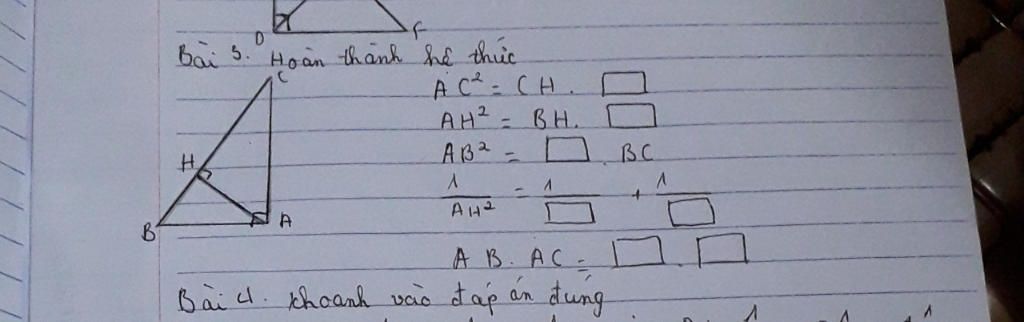 D F
Bài 3. Hoàn thành hệ thức
C
AC² = CH. □
AH² = BH. □
H
AB² = □. BC
1/AH² = 1/□ + 1/□
B A
AB. AC = □. □
Bài 4. Khoanh vào đáp án đúng